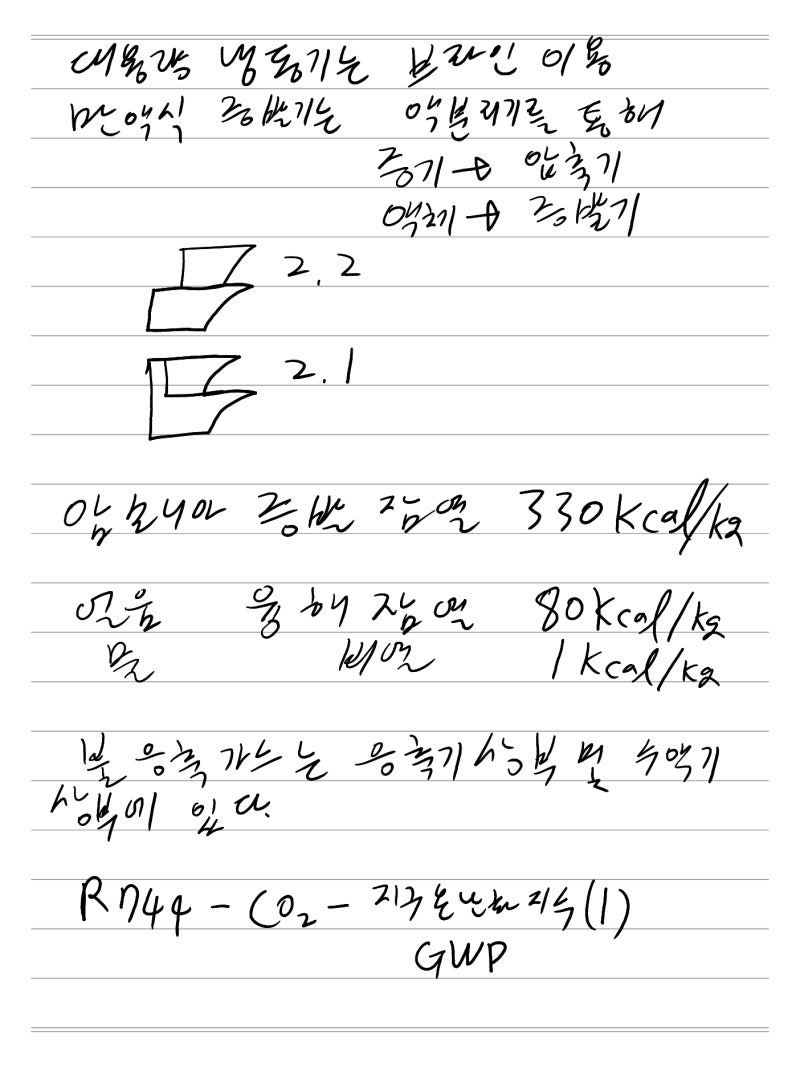 대용량 냉동기는 브라인 이용
만액식 증발기는 액분리기를 통해
증기 → 압축기
액체 → 증발기
2.2
2.1
암모니아 증발 잠열 330kcal/kg
얼음 융해 잠열 80kcal/kg
물 비열 1kcal/kg
불응축 가스는 응축기 상부 및 수액기
상부에 있다.
R744 - CO₂ - 지구온난화지수(1)
GWP